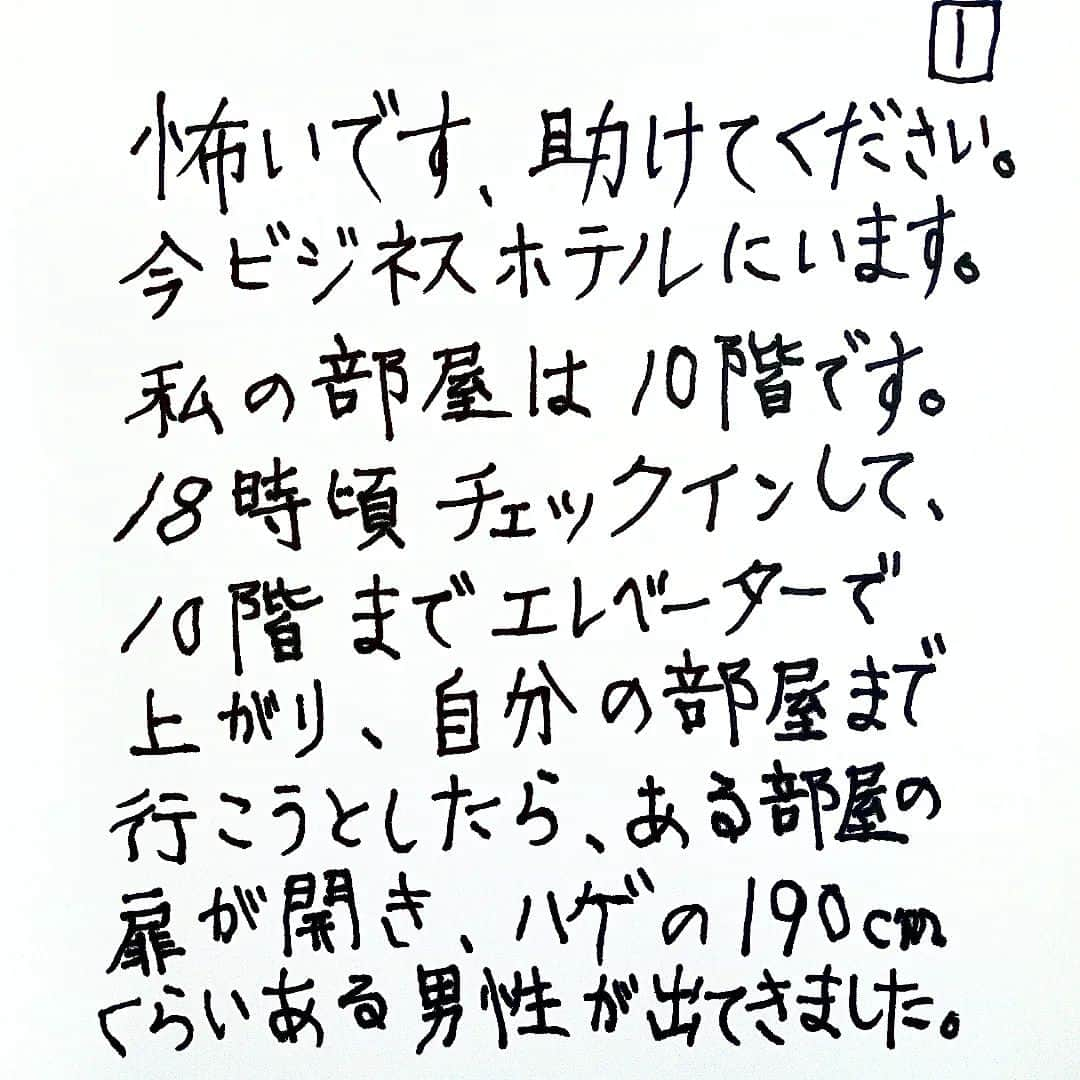 1
怖いです、助けてください。
今ビジネスホテルにいます。
私の部屋は10階です。
18時頃チェックインして、
10階までエレベーターで
上がり、自分の部屋まで
行こうとしたら、ある部屋の
扉が開き、ハゲの190cm
くらいある男性が出てきました。